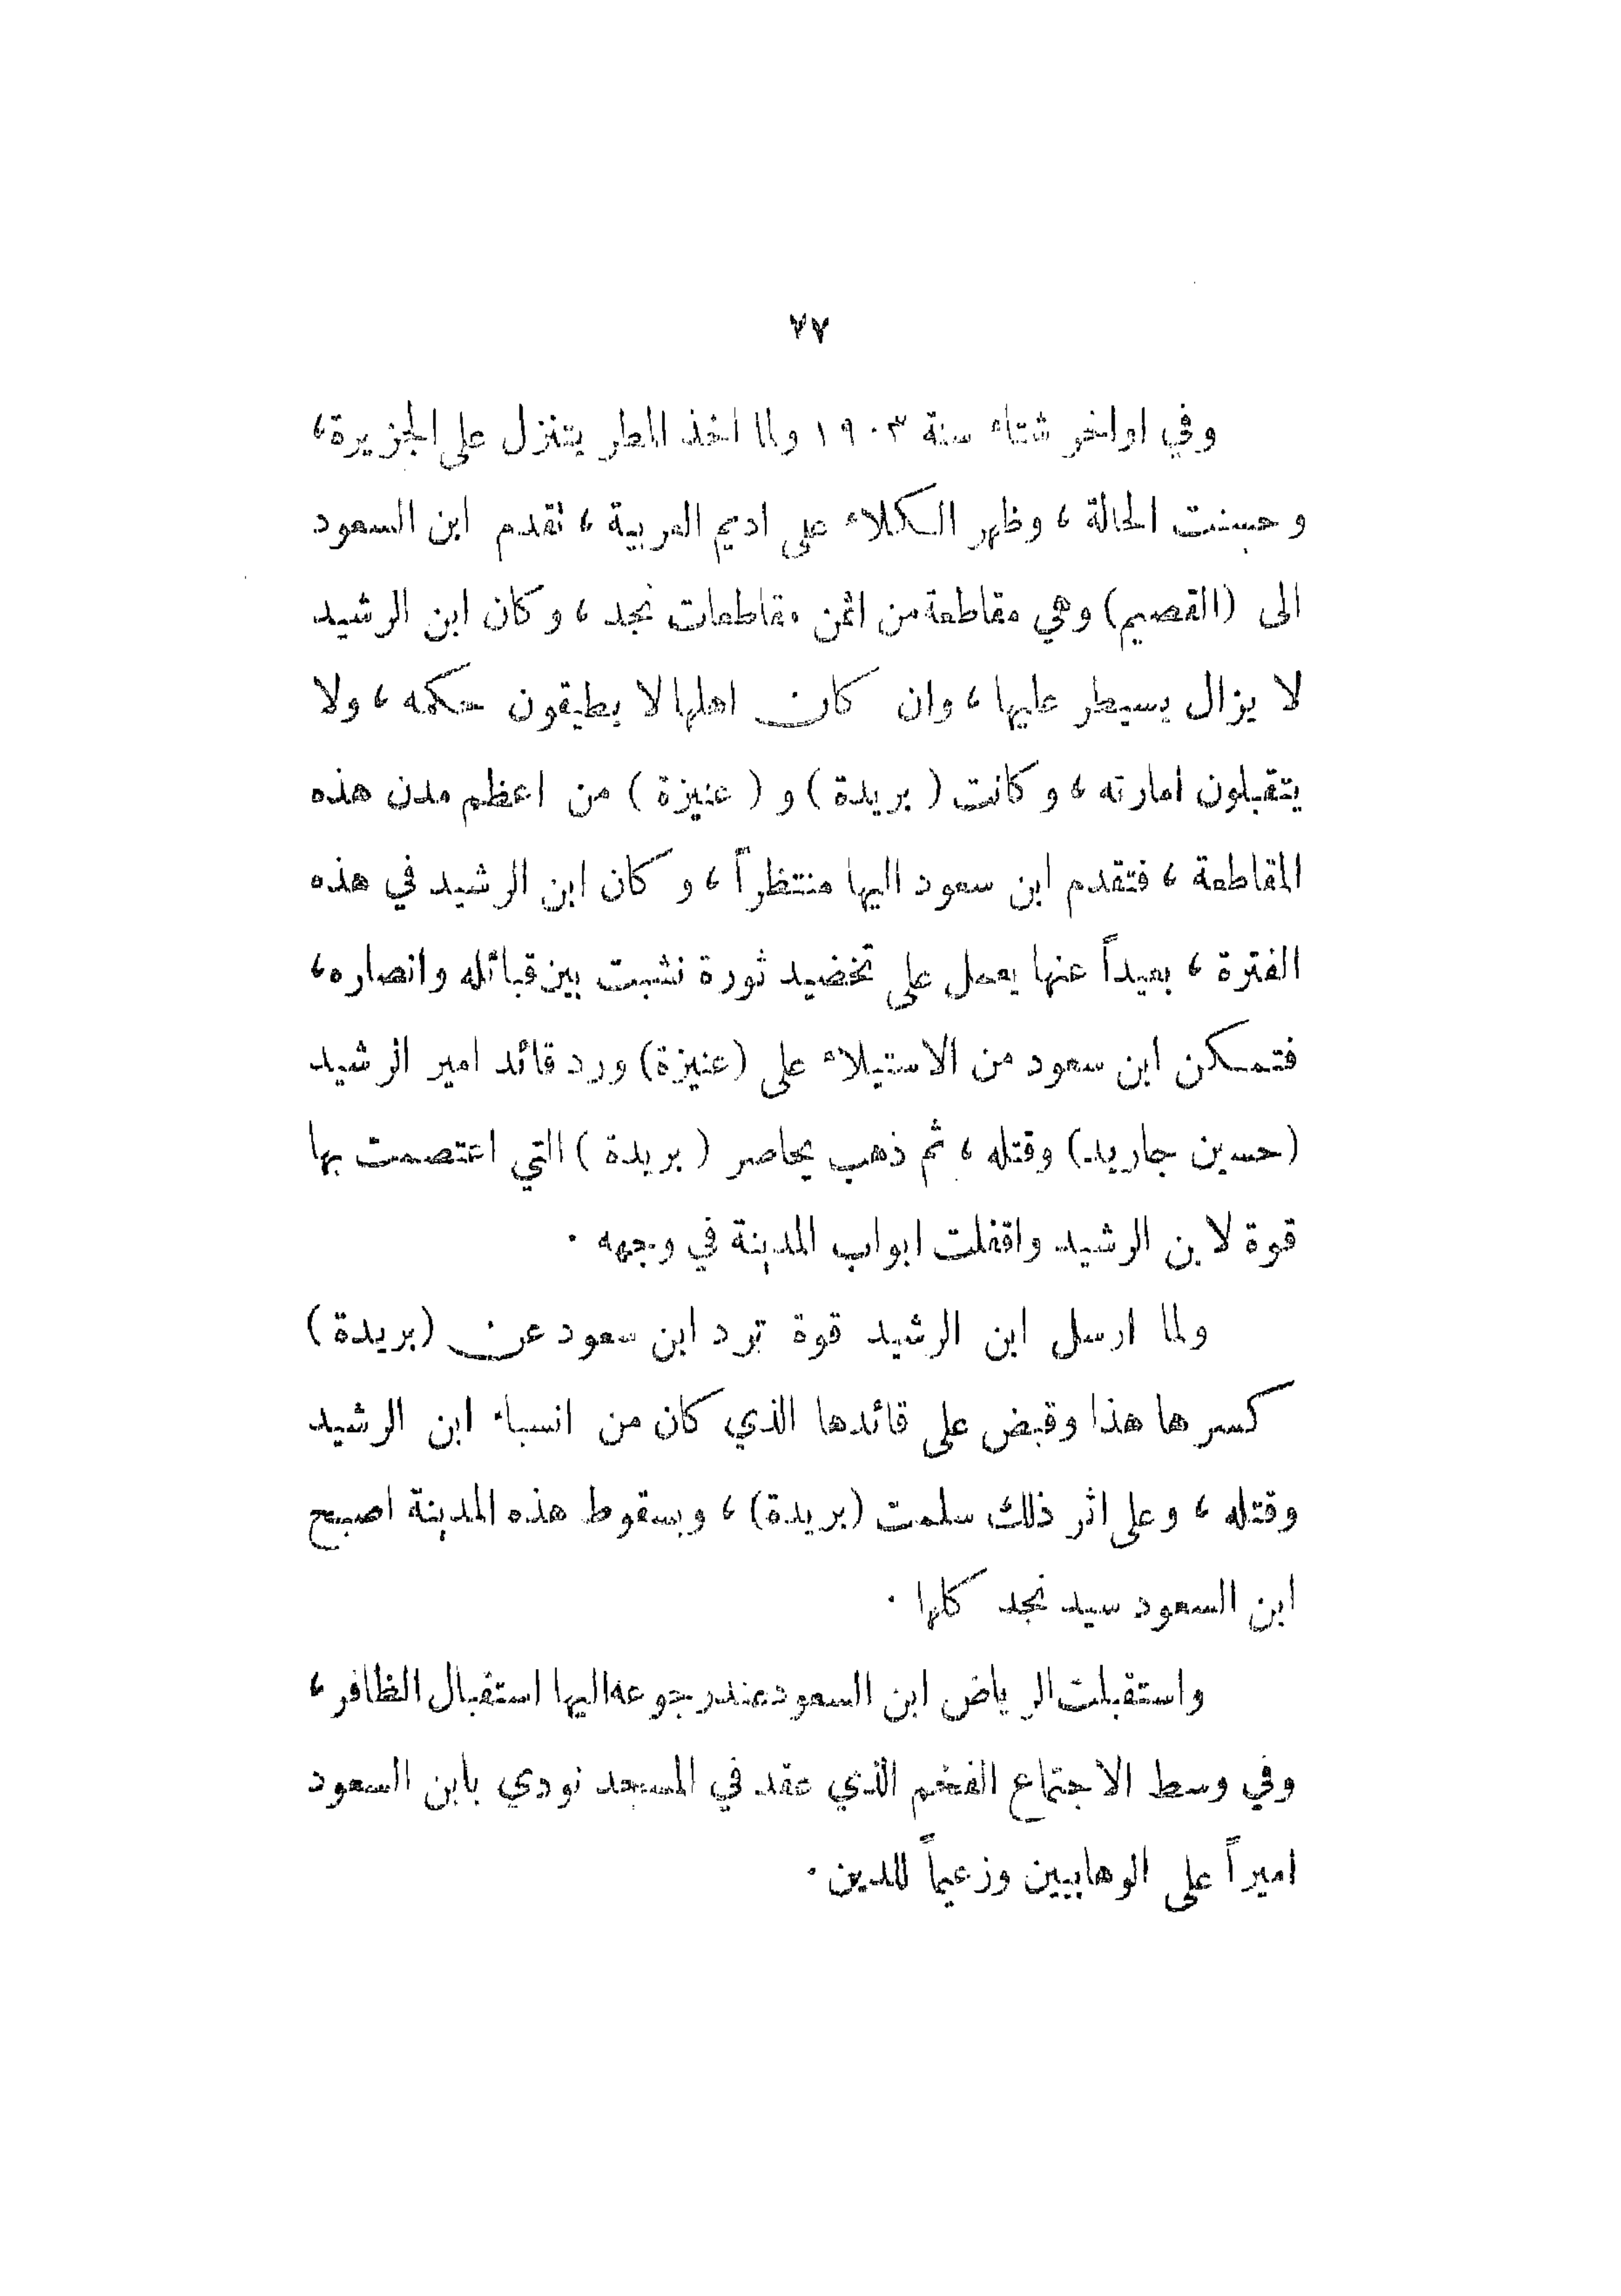 ٧٧
وفي اواخر شتاء سنة ١٩٠٣ ولما اخذ المطر يتنزل على الجزيرة،
وحسنت الحالة، وظهر الكلاء على اديم العربية، تقدم ابن السعود
الى (القصيم) وهي مقاطعة من اثمن مقاطعات نجد، وكان ابن الرشيد
لا يزال يسيطر عليها، وان كان اهلها لا يطيقون حكمه، ولا
يتقبلون امارته، وكانت (بريدة) و (عنيزة) من اعظم مدن هذه
المقاطعة، فتقدم ابن سعود اليها منتظراً، وكان ابن الرشيد في هذه
الفترة، بعيداً عنها يعمل على تخضيد ثورة نشبت بين قبائله وانصاره،
فتمكن ابن سعود من الاستيلاء على (عنيزة) ورد قائد امير الرشيد
(حسين جاريد) وقتله، ثم ذهب يحاصر (بريدة) التي اعتصمت بها
قوة لابن الرشيد واقفلت ابواب المدينة في وجهه .
ولما ارسل ابن الرشيد قوة ترد ابن سعود عن (بريدة)
كسرها هذا وقبض على قائدها الذي كان من انسباء ابن الرشيد
وقتله، وعلى اثر ذلك سلمت (بريدة)، وبسقوط هذه المدينة اصبح
ابن السعود سيد نجد كلها .
واستقبلت الرياض ابن السعود عند رجوعه اليها استقبال الظافر،
وفي وسط الاجتماع الفخم الذي عقد في المسجد نودي بابن السعود
اميراً على الوهابيين وزعيماً للدين .